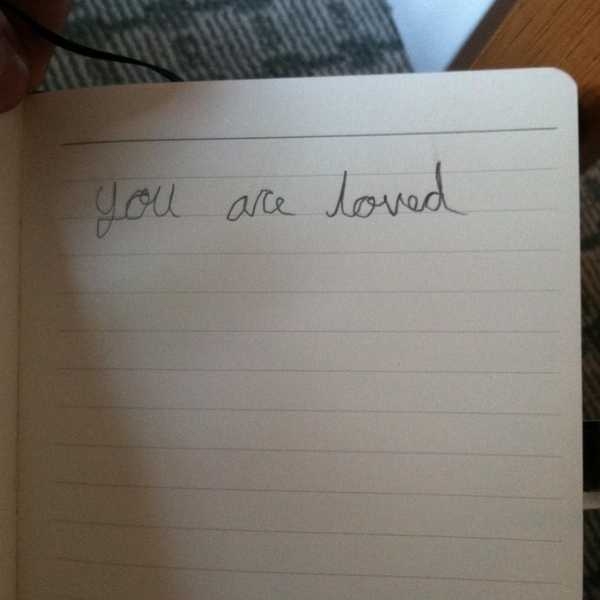 you are loved